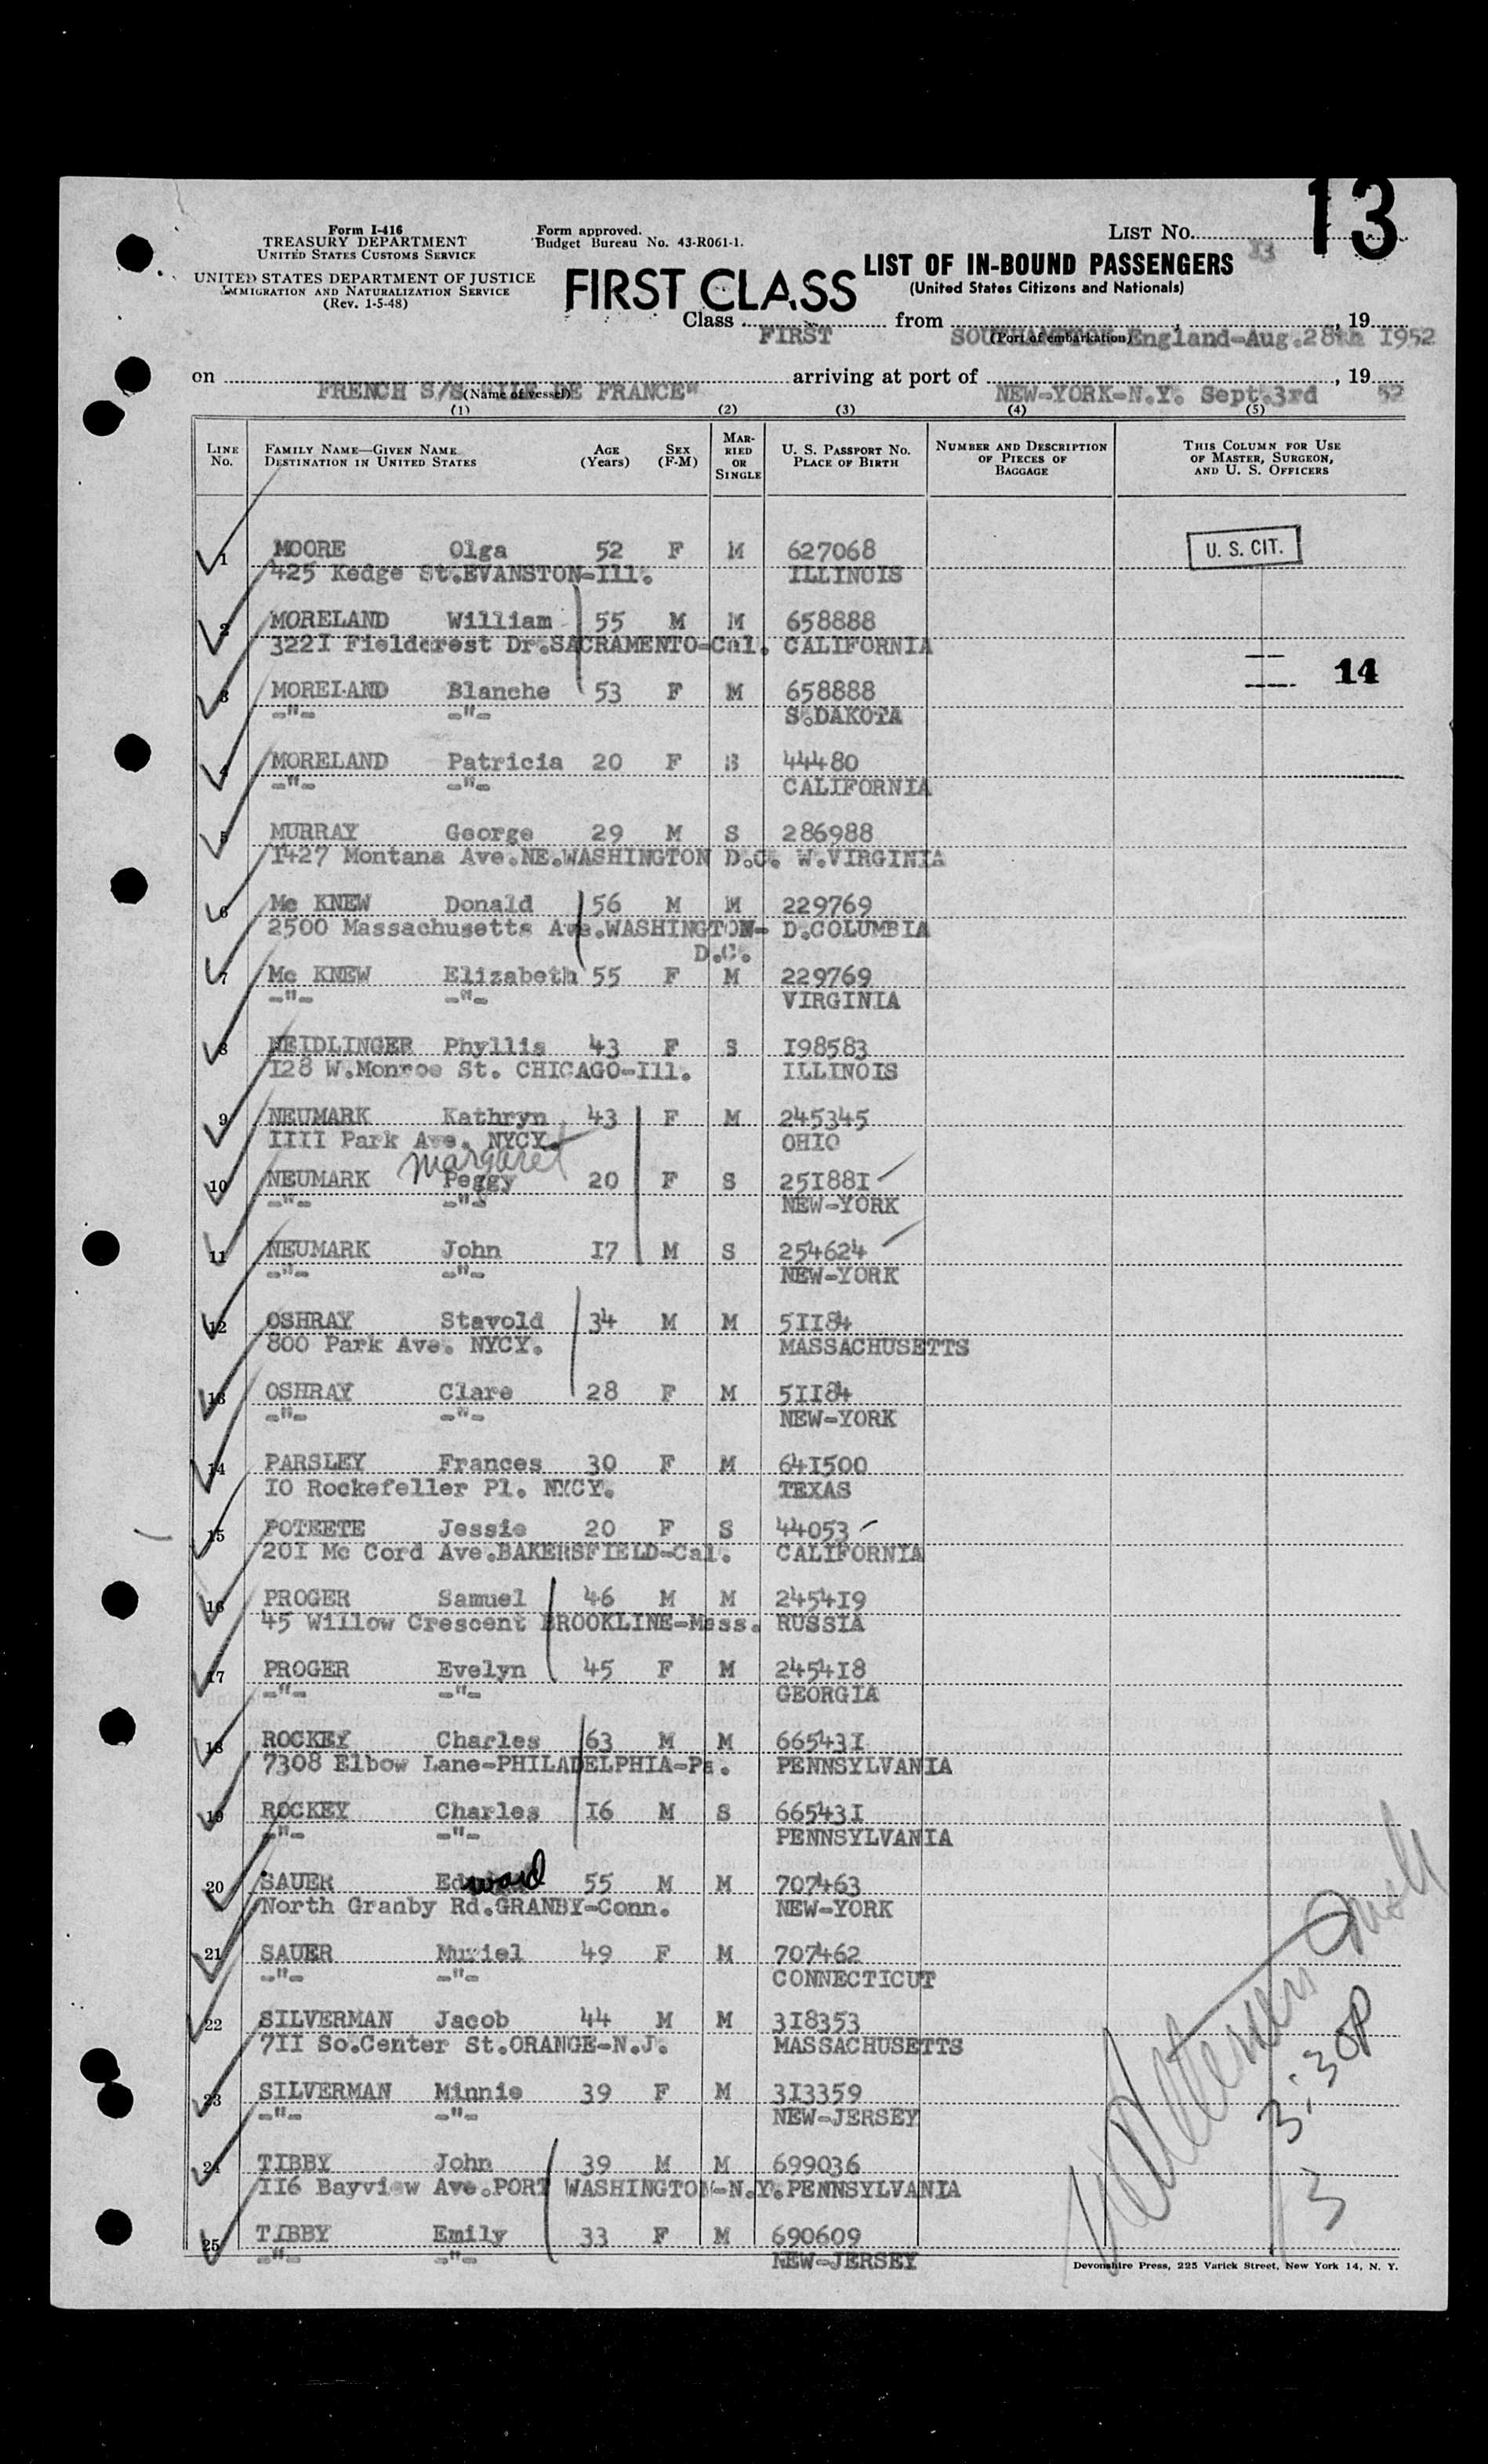 13
Form I-416
TREASURY DEPARTMENT
UNITED STATES CUSTOMS SERVICE
UNITED STATES DEPARTMENT OF JUSTICE
IMMIGRATION AND NATURALIZATION SERVICE
(Rev. 1-5-48)
Form approved.
Budget Bureau No. 43-R061-1.
LIST No. 13
FIRST CLASS
LIST OF IN-BOUND PASSENGERS
(United States Citizens and Nationals)
Class FIRST from SOUTHAMPTON England-Aug.28th 1952, 19
(Port of embarkation)
on FRENCH S/S "ILE DE FRANCE" arriving at port of NEW-YORK-N.Y. Sept.3rd, 19 52
(Name of vessel)
(1) (2) (3) (4) (5)
LINE No. FAMILY NAME—GIVEN NAME DESTINATION IN UNITED STATES AGE (Years) SEX (F-M) MARRIED OR SINGLE U. S. PASSPORT No. PLACE OF BIRTH NUMBER AND DESCRIPTION OF PIECES OF BAGGAGE THIS COLUMN FOR USE OF MASTER, SURGEON, AND U. S. OFFICERS
1 MOORE Olga 52 F M 627068 U. S. CIT.
425 Kedge St.EVANSTON-Ill. ILLINOIS
2 MORELAND William 55 M M 658888
322I Fieldcrest Dr.SACRAMENTO-Cal. CALIFORNIA
14
3 MORELAND Blanche 53 F M 658888
-"- -"- S.DAKOTA
4 MORELAND Patricia 20 F S 44480
-"- -"- CALIFORNIA
5 MURRAY George 29 M S 286988
I427 Montana Ave.NE.WASHINGTON D.C. W.VIRGINIA
6 Mc KNEW Donald 56 M M 229769
2500 Massachusetts Ave.WASHINGTON- D.COLUMBIA
D.C.
7 Mc KNEW Elizabeth 55 F M 229769
-"- -"- VIRGINIA
8 NEIDLINGER Phyllis 43 F S I98583
I28 W.Monroe St. CHICAGO-Ill. ILLINOIS
9 NEUMARK Kathryn 43 F M 245345
IIII Park Ave. NYCY. OHIO
Margaret
10 NEUMARK Peggy 20 F S 25I88I
-"- -"- NEW-YORK
11 NEUMARK John I7 M S 254624
-"- -"- NEW-YORK
12 OSHRAY Stavold 34 M M 5II84
800 Park Ave. NYCY. MASSACHUSETTS
13 OSHRAY Clare 28 F M 5II84
-"- -"- NEW-YORK
14 PARSLEY Frances 30 F M 64I500
IO Rockefeller Pl. NYCY. TEXAS
15 POTEETE Jessie 20 F S 44053
20I Mc Cord Ave.BAKERSFIELD-Cal. CALIFORNIA
16 PROGER Samuel 46 M M 2454I9
45 Willow Crescent BROOKLINE-Mass. RUSSIA
17 PROGER Evelyn 45 F M 2454I8
-"- -"- GEORGIA
18 ROCKEY Charles 63 M M 66543I
7308 Elbow Lane-PHILADELPHIA-Pa. PENNSYLVANIA
19 ROCKEY Charles I6 M S 66543I
-"- -"- PENNSYLVANIA
20 SAUER Edward 55 M M 707463
North Granby Rd.GRANBY-Conn. NEW-YORK
21 SAUER Muriel 49 F M 707462
-"- -"- CONNECTICUT
22 SILVERMAN Jacob 44 M M 3I8353
7II So.Center St.ORANGE-N.J. MASSACHUSETTS
23 SILVERMAN Minnie 39 F M 3I3359
-"- -"- NEW-JERSEY
24 TIBBY John 39 M M 699036
II6 Bayview Ave.PORT WASHINGTON-N.Y. PENNSYLVANIA
25 TIBBY Emily 33 F M 690609
-"- -"- NEW-JERSEY
3:30P
3
Devonshire Press, 225 Varick Street, New York 14, N. Y.